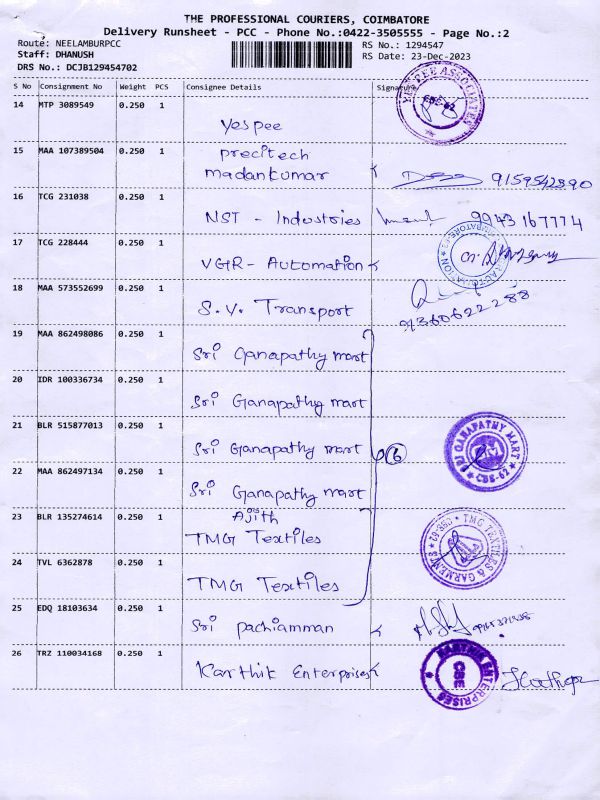 THE PROFESSIONAL COURIERS, COIMBATORE
Delivery Runsheet - PCC - Phone No.:0422-3505555 - Page No.:2
Route: NEELAMBURPCC
RS No.: 1294547
Staff: DHANUSH
RS Date: 23-Dec-2023
DRS No.: DCJB129454702
S No Consignment No Weight PCS Consignee Details Signature
14 MTP 3089549 0.250 1
Yespee
YES PEE ASSOCIATES
CBE-62
15 MAA 107389504 0.250 1
precitech
madankumar
9159542890
16 TCG 231038 0.250 1
NST - Industries
9943167774
17 TCG 228444 0.250 1
VGR - Automation
18 MAA 573552699 0.250 1
S.V. Transport
9360622288
19 MAA 862498086 0.250 1
Sri Ganapathy mart
20 IDR 100336734 0.250 1
Sri Ganapathy mart
21 BLR 515877013 0.250 1
Sri Ganapathy mart
6
SRI GANAPATHY MART
CBE-62
22 MAA 862497134 0.250 1
Sri Ganapathy mart
23 BLR 135274614 0.250 1
Ajith
TMG Textiles
TMG TEXTILES & GARMENTS
24 TVL 6362878 0.250 1
TMG Textiles
25 EDQ 18103634 0.250 1
Sri pachiamman
26 TRZ 110034168 0.250 1
Karthik Enterprises
KARTHIK ENTERPRISES
CBE